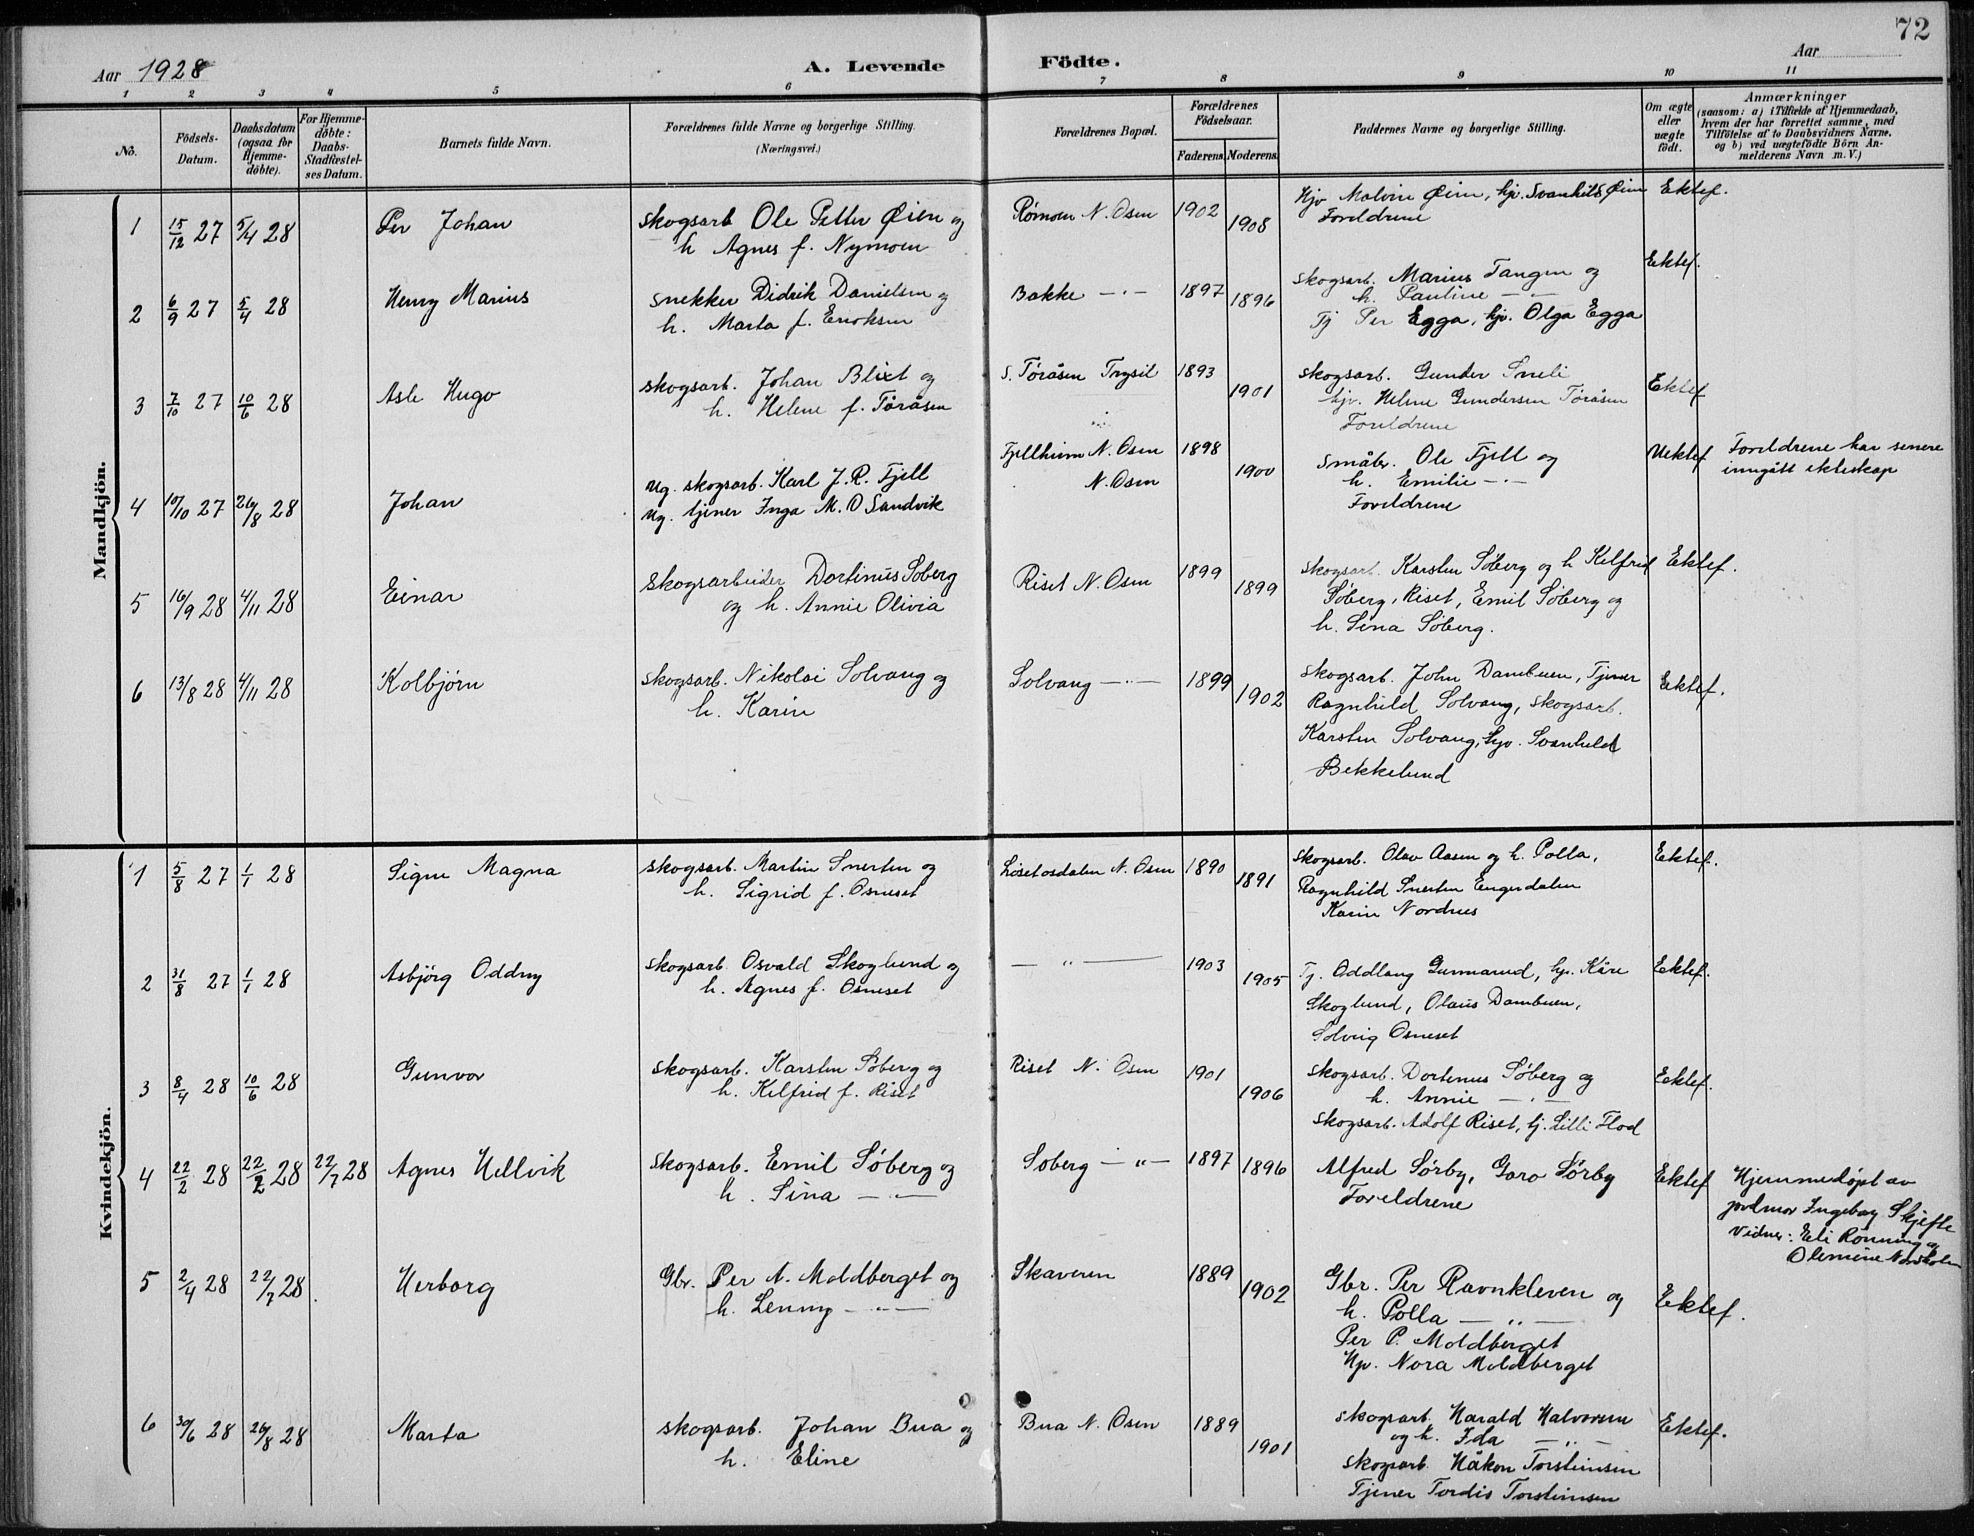 72
Aar 1928
A. Levende Födte.
Aar
1 2 3 4 5 6 7 8 9 10 11
No.
Födsels-
Datum.
Daabsdatum
(ogsaa for
Hjemme-
döbte).
For Hjemme-
döbte:
Daabs-
Stadfæstel-
ses Datum.
Barnets fulde Navn.
Forældrenes fulde Navne og borgerlige Stilling.
(Næringsvei.)
Forældrenes Bopæl.
Forældrenes
Födselsaar.
Faderens. Moderens.
Faddernes Navne og borgerlige Stilling.
Om ægte
eller
uægte
födt.
Anmærkninger
(saasom: a) i Tilfælde af Hjemmedaab,
hvem der har forrettet samme, med
Tilföielse af to Daabsvidners Navne,
og b) ved uægtefödte Börn An-
melderens Navn m. V.)
Mandkjön.
1 15/12 27 5/4 28 Per Johan
skogsarb Ole Petter Øien og
h Agnes f. Nymoen
Rømoen N. Osen 1902 1908
Hjv Malvine Øien, hjv. Svanhild Øien
Foreldrene
Ektef.
2 6/9 27 5/4 28 Henry Marius
snekker Didrik Danielsen og
h. Marta f. Eriksen
Bakke —"— 1897 1896
skogsarb. Marius Tangen og
h. Pauline —"—
Tj Per Egga, hjv. Olga Egga
Ektef.
3 7/10 27 10/6 28 Asle Hugo
skogsarb. Johan Blixt og
h. Helene f. Töråsen
S. Töråsen Trysil 1893 1901
skogsarb. Gunder Sneli
hjv. Helene Gundersen Töråsen
Foreldrene
Ektef
4 10/10 27 26/8 28 Johan
ug. skogsarb. Karl J. R. Fjell
ug. tjener Inga M. O Sandvik
Fjellheim N. Osen
N. Osen
1898 1900
småbr. Ole Fjell og
h. Emilie —"—
Foreldrene
Uektef
Foreldrene har senere
inngått ekteskap
5 16/9 28 4/11 28 Einar
Skogsarbeider Dortinus Söberg
og h. Annie Olivia
Riset N. Osen 1899 1899
skogsarb. Karsten Söberg og h Kelfrid
Söberg, Riset, Emil Söberg og
h. Sina Söberg.
Ektef.
6 13/8 28 4/11 28 Kolbjörn
skogsarb. Nikolai Solvang og
h. Karin
Solvang —"— 1899 1902
skogsarb. John Dambuen, Tjener
Ragnhild Solvang, skogsarb.
Karsten Solvang, hjv. Svanhild
Bekkelund
Ektef.
Kvindekjön.
1 5/8 27 1/1 28 Signe Magna
skogsarb. Martin Snerten og
h. Sigrid f. Osneset
Løsetosdalen N. Osen 1890 1891
skogsarb. Olav Aasen og h. Polla,
Ragnhild Snerten Engerdalen
Karin Nordnes
Ektef.
2 31/8 27 1/1 28 Asbjörg Oddny
skogsarb. Osvald Skoglund og
h. Agnes f. Osneset
— " — 1903 1905
Tj. Oddlaug Gunnarud, hj. Kåre
Skoglund, Olaus Dambuen,
Solveig Osneset
Ektef.
3 8/4 28 10/6 28 Gunvor
skogsarb. Karsten Söberg og
h. Kelfrid f. Riset
Riset N. Osen 1901 1906
skogsarb. Dortenus Söberg og
h. Annie —"—
skogsarb. Adolf Riset, tj. Lilli Flod
Ektef.
4 22/2 28 22/2 28 22/7 28 Agnes Hellvik
skogsarb. Emil Söberg og
h. Sina —"—
Söberg —"— 1897 1896
Alfred Sörby, Garo Sörby
Foreldrene
Ektef
Hjemmedøpt av
jordmor Ingeborg Skjefte
Vidner: Eli Rönning og
Olemine
5 2/4 28 22/7 28 Herborg
Gbr. Per A. Moldberget og
h. Lenny —"—
Skaveren 1889 1902
Gbr. Per Ravnkleven og
h. Polla —"—
Per P. Moldberget
Hjv. Nora Moldberget
Ektef.
6 30/6 28 26/8 28 Marta
skogsarb. Johan Bua og
h. Eline
Bua N. Osen 1889 1901
skogsarb. Harald Halvorsen
og h. Ida —"—
skogsarb. Håkon Torsteinsen
Tjener Tordis Torsteinsen
Ektef.